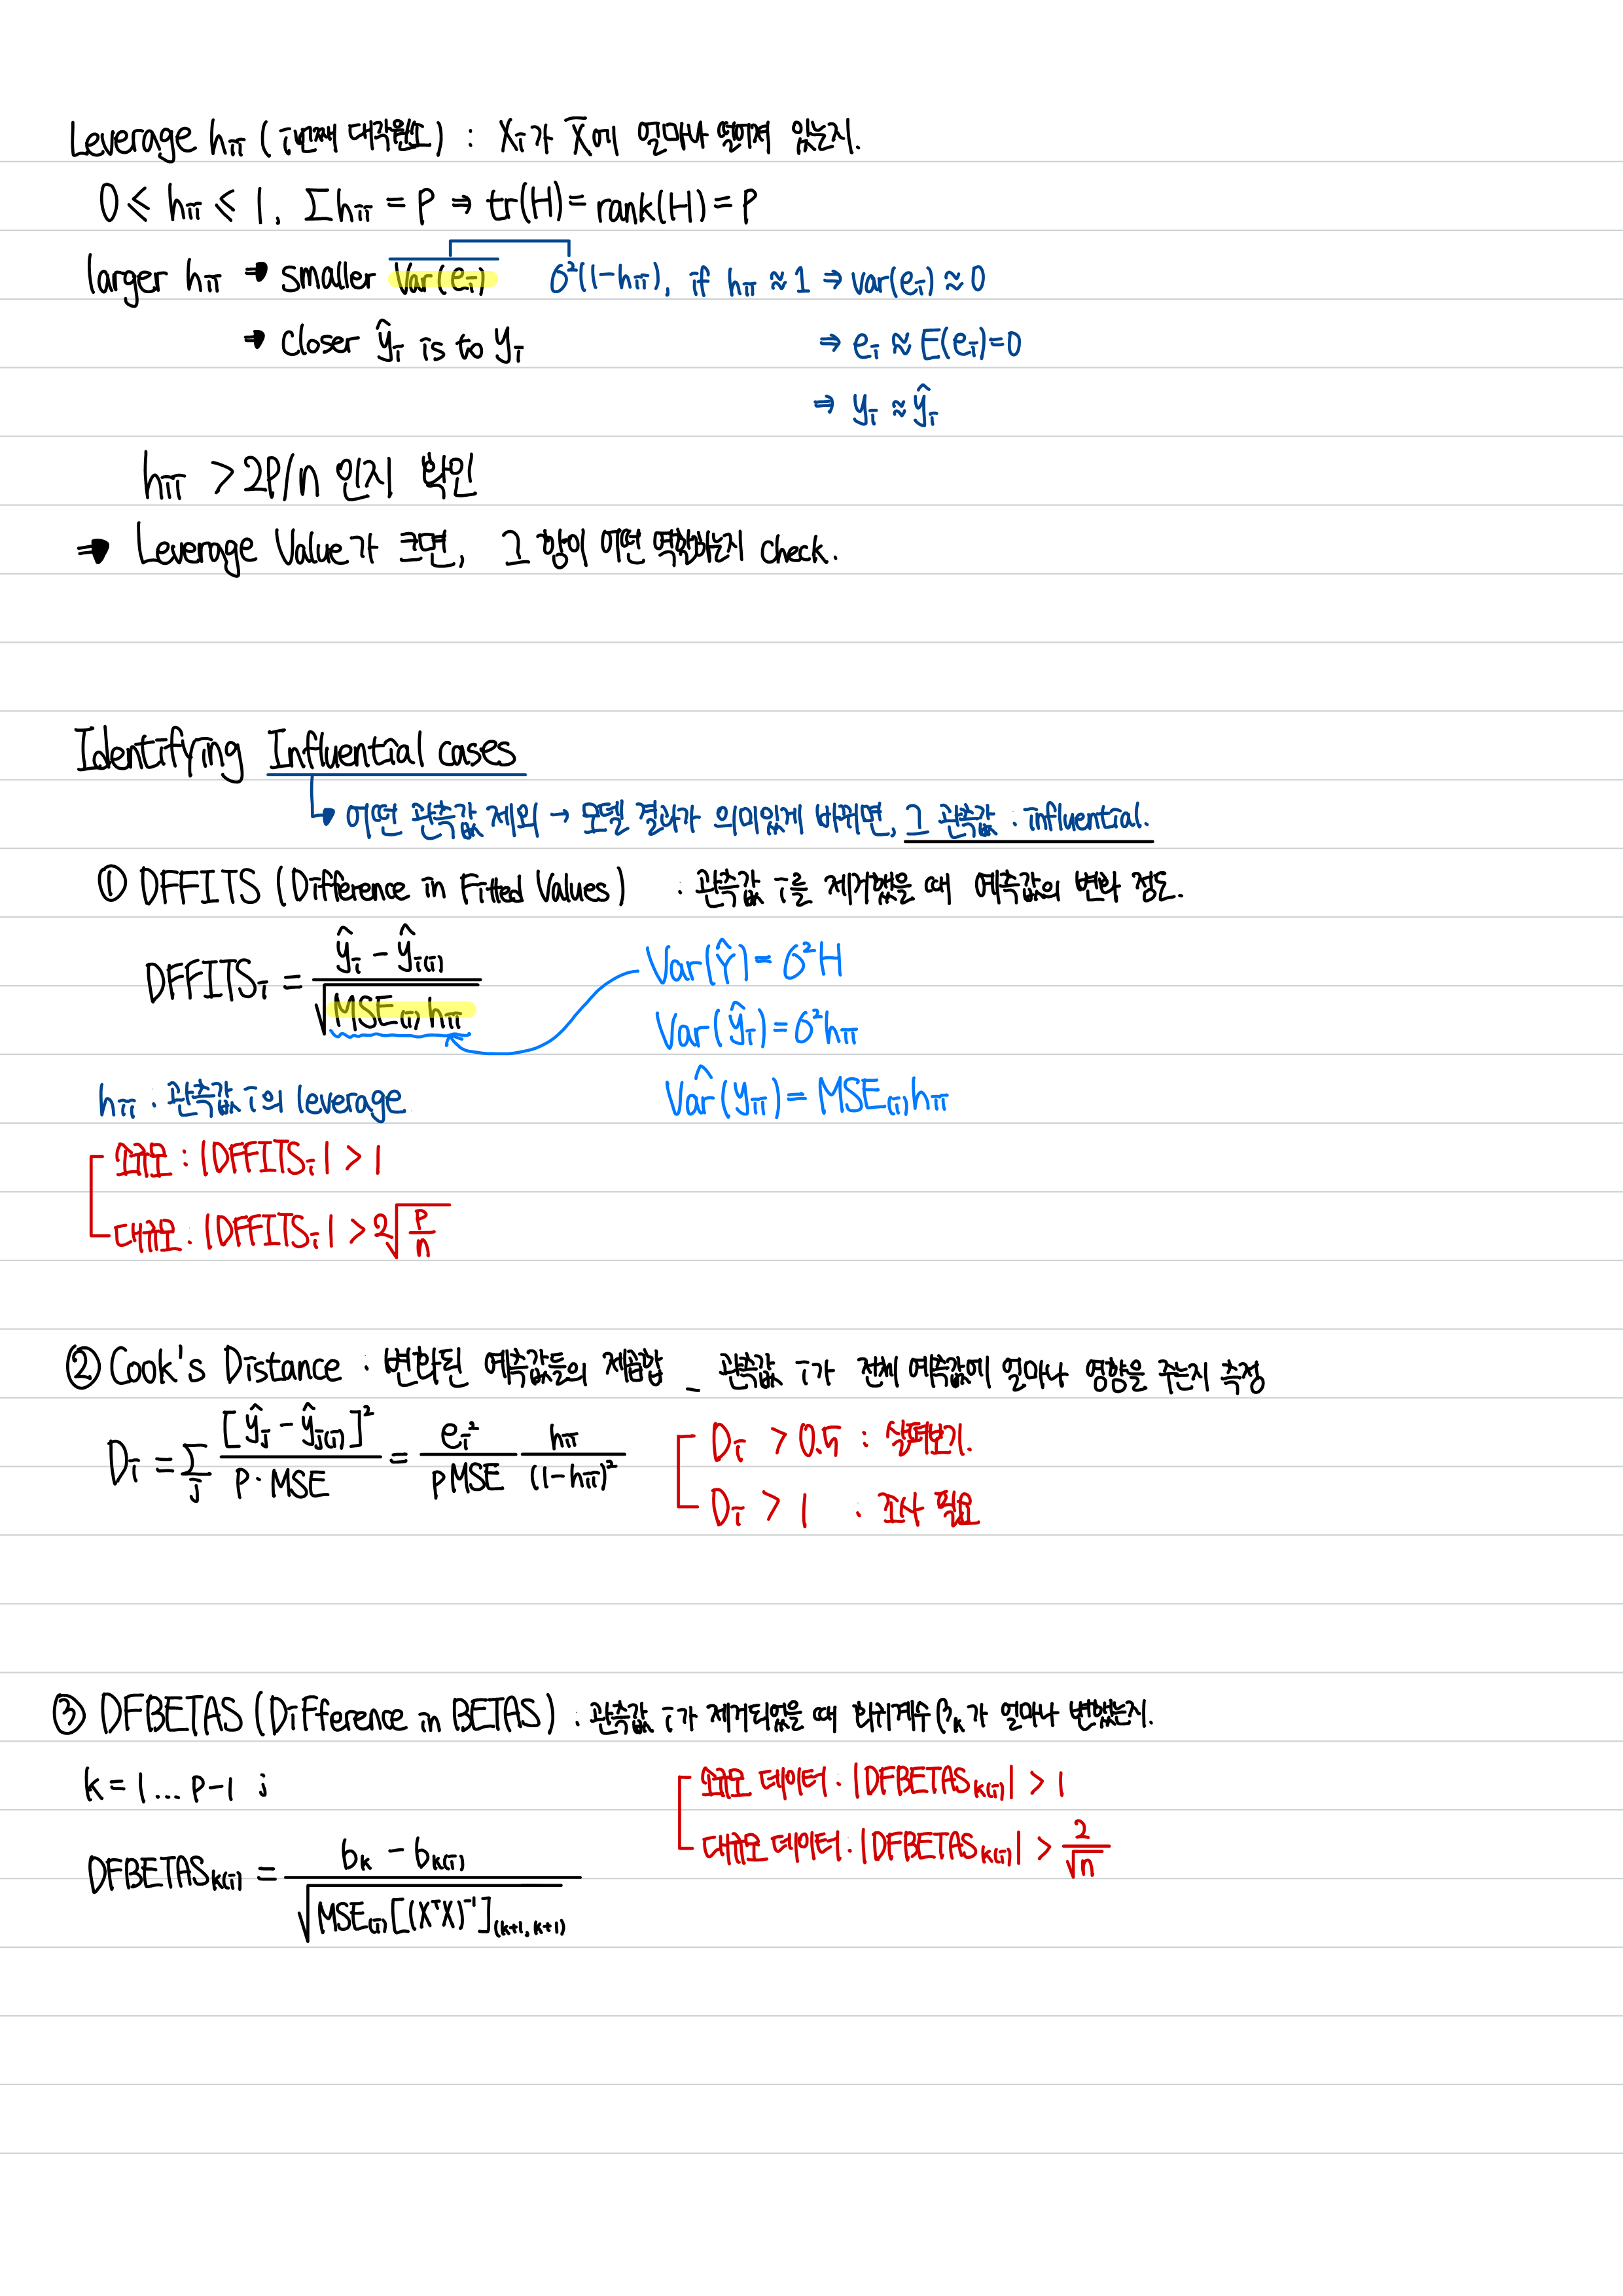 Leverage hᵢᵢ (i번째 대각원소) : Xᵢ가 X̄에 얼마나 떨어져 있는지.
0 ≤ hᵢᵢ ≤ 1, Σhᵢᵢ = P ⇒ tr(H) = rank(H) = P
larger hᵢᵢ ⇒ smaller Var(eᵢ) σ²(1-hᵢᵢ), if hᵢᵢ ≈ 1 ⇒ var(eᵢ) ≈ 0
⇒ closer ŷᵢ is to yᵢ ⇒ eᵢ ≈ E(eᵢ) = 0
⇒ yᵢ ≈ ŷᵢ
hᵢᵢ > 2P/n 인지 확인
⇒ Leverage Value가 크면, 그 항이 어떤 역할하는지 check.
Identifying Influential cases
↳ 어떤 관측값 제외 → 모델 결과가 의미있게 바뀌면, 그 관측값 : influential.
① DFFITS (Difference in Fitted Values) : 관측값 i를 제거했을 때 예측값의 변화 정도.
DFFITSᵢ = (ŷᵢ - ŷᵢ₍ᵢ₎) / √(MSE₍ᵢ₎ hᵢᵢ)
Var(Ŷ) = σ²H
Var(ŷᵢ) = σ²hᵢᵢ
Var̂(yᵢᵢ) = MSE₍ᵢ₎hᵢᵢ
hᵢᵢ : 관측값 i의 leverage
소규모 : |DFFITSᵢ| > 1
대규모 : |DFFITSᵢ| > 2√(P/n)
② Cook's Distance : 변화된 예측값들의 제곱합 _ 관측값 i가 전체 예측값에 얼마나 영향을 주는지 측정
Dᵢ = Σⱼ [ŷⱼ - ŷⱼ₍ᵢ₎]² / (P · MSE) = eᵢ² / (P MSE) hᵢᵢ / (1-hᵢᵢ)²
Dᵢ > 0.5 : 살펴보기.
Dᵢ > 1 : 조사 필요
③ DFBETAS (Difference in BETAS) : 관측값 i가 제거되었을 때 회귀계수 βₖ가 얼마나 변했는지.
k = 1 ... P-1 ;
소규모 데이터 : |DFBETASₖ₍ᵢ₎| > 1
대규모 데이터 : |DFBETASₖ₍ᵢ₎| > 2/√n
DFBETASₖ₍ᵢ₎ = (bₖ - bₖ₍ᵢ₎) / √(MSE₍ᵢ₎ [(XᵀX)⁻¹]₍ₖ₊₁, ₖ₊₁₎)